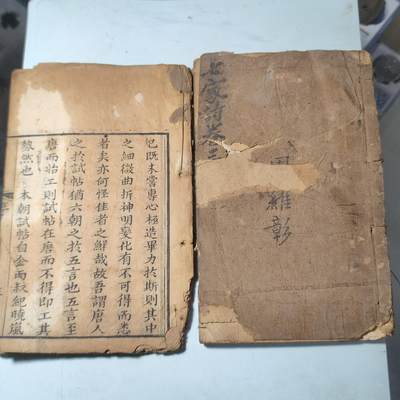 既未嘗專心極造畢力於斯則其中
之細微曲折神明變化有不可得而悉
者矣亦何怪佳者之鮮哉故吾謂唐人
之於試帖猶六朝之於五言也五言至
唐而始工則試帖在唐而不得即工其
勢然也 本朝試帖自金雨叔紀曉嵐
七家詩卷三
周維彰